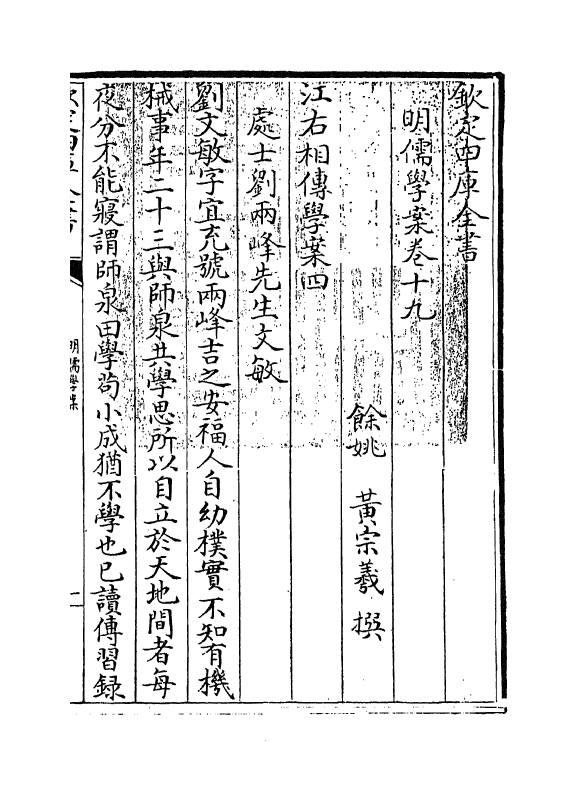 欽定四庫全書
明儒學案卷十九
餘姚　黃宗羲　撰
江右相傳學案四
處士劉兩峰先生文敏
劉文敏字宜充號兩峰吉之安福人自幼樸實不知有機
械事年二十三與師泉共學思所以自立於天地間者每
夜分不能寢謂師泉曰學茍小成猶不學也已讀傳習録
明儒學案